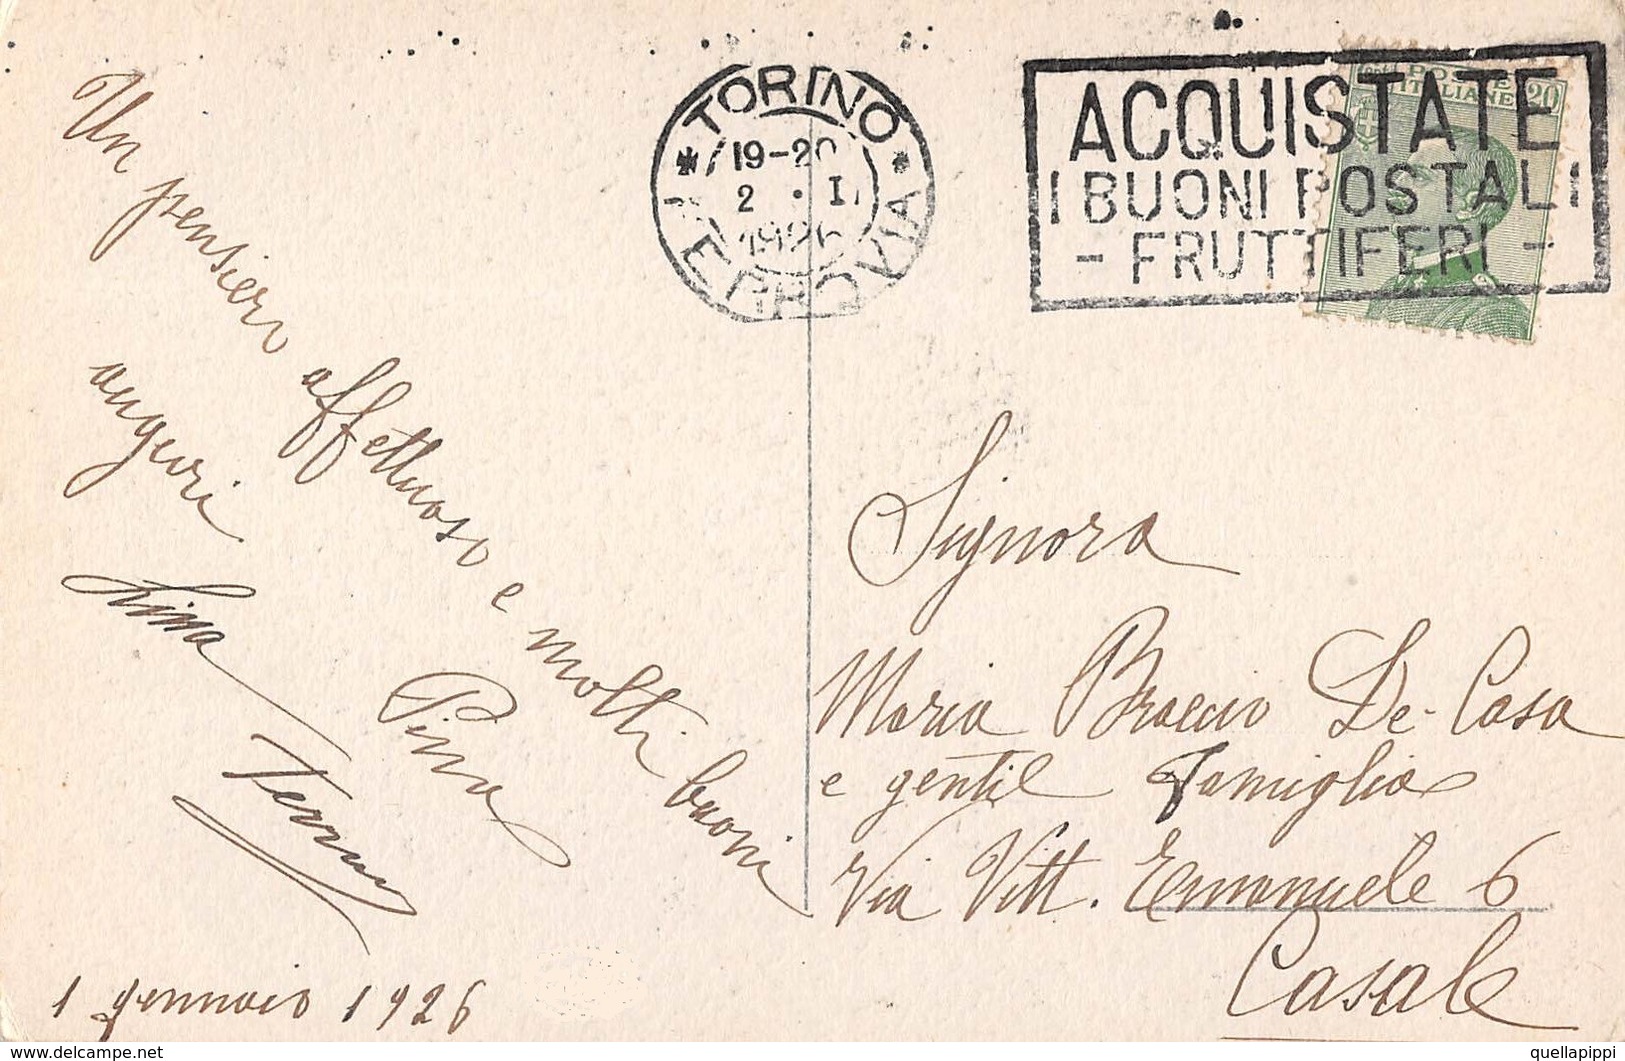 Un pensiero affettuoso e molti buoni
auguri
Pina
1 gennaio 1926
* TORINO *
FERROVIA
19-20
2 . I
1926
ACQUISTATE
I BUONI POSTALI
- FRUTTIFERI -
POSTE
ITALIANE
20
Signora
Maria Braccio De-Casa
e gentil Famiglia
Via Vitt. Emanuele 6
Casale
delcampe.net
quellapippi